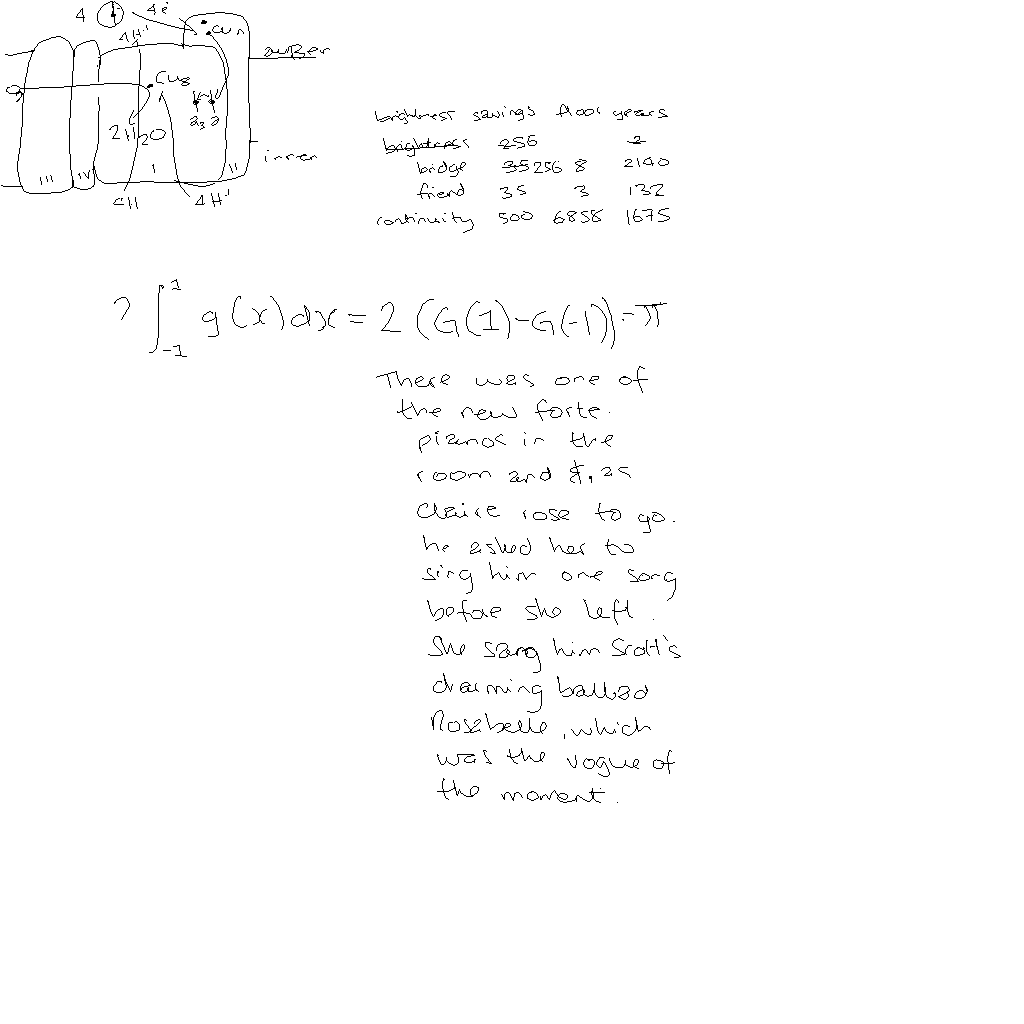 4 4e
4H+ Cu
außer
Cu
a3 a
2H2O
inner
III IV I II
4H 4H+
brightnest savings floor years
256 2
bridge 256 8 2140
friend 35 3 132
continuity 500 6858 1675
? ∫_{-1}^{1} g(x)dx = 2(G(1)-G(-1))-π
There was one of
the new forte.
pianos in the
room and $.25
Claire rose to go.
he asked her to
sing him one song
before she left.
She sang him Scott's
charming ballad
Rosebelle, which
was the vogue of
the moment.